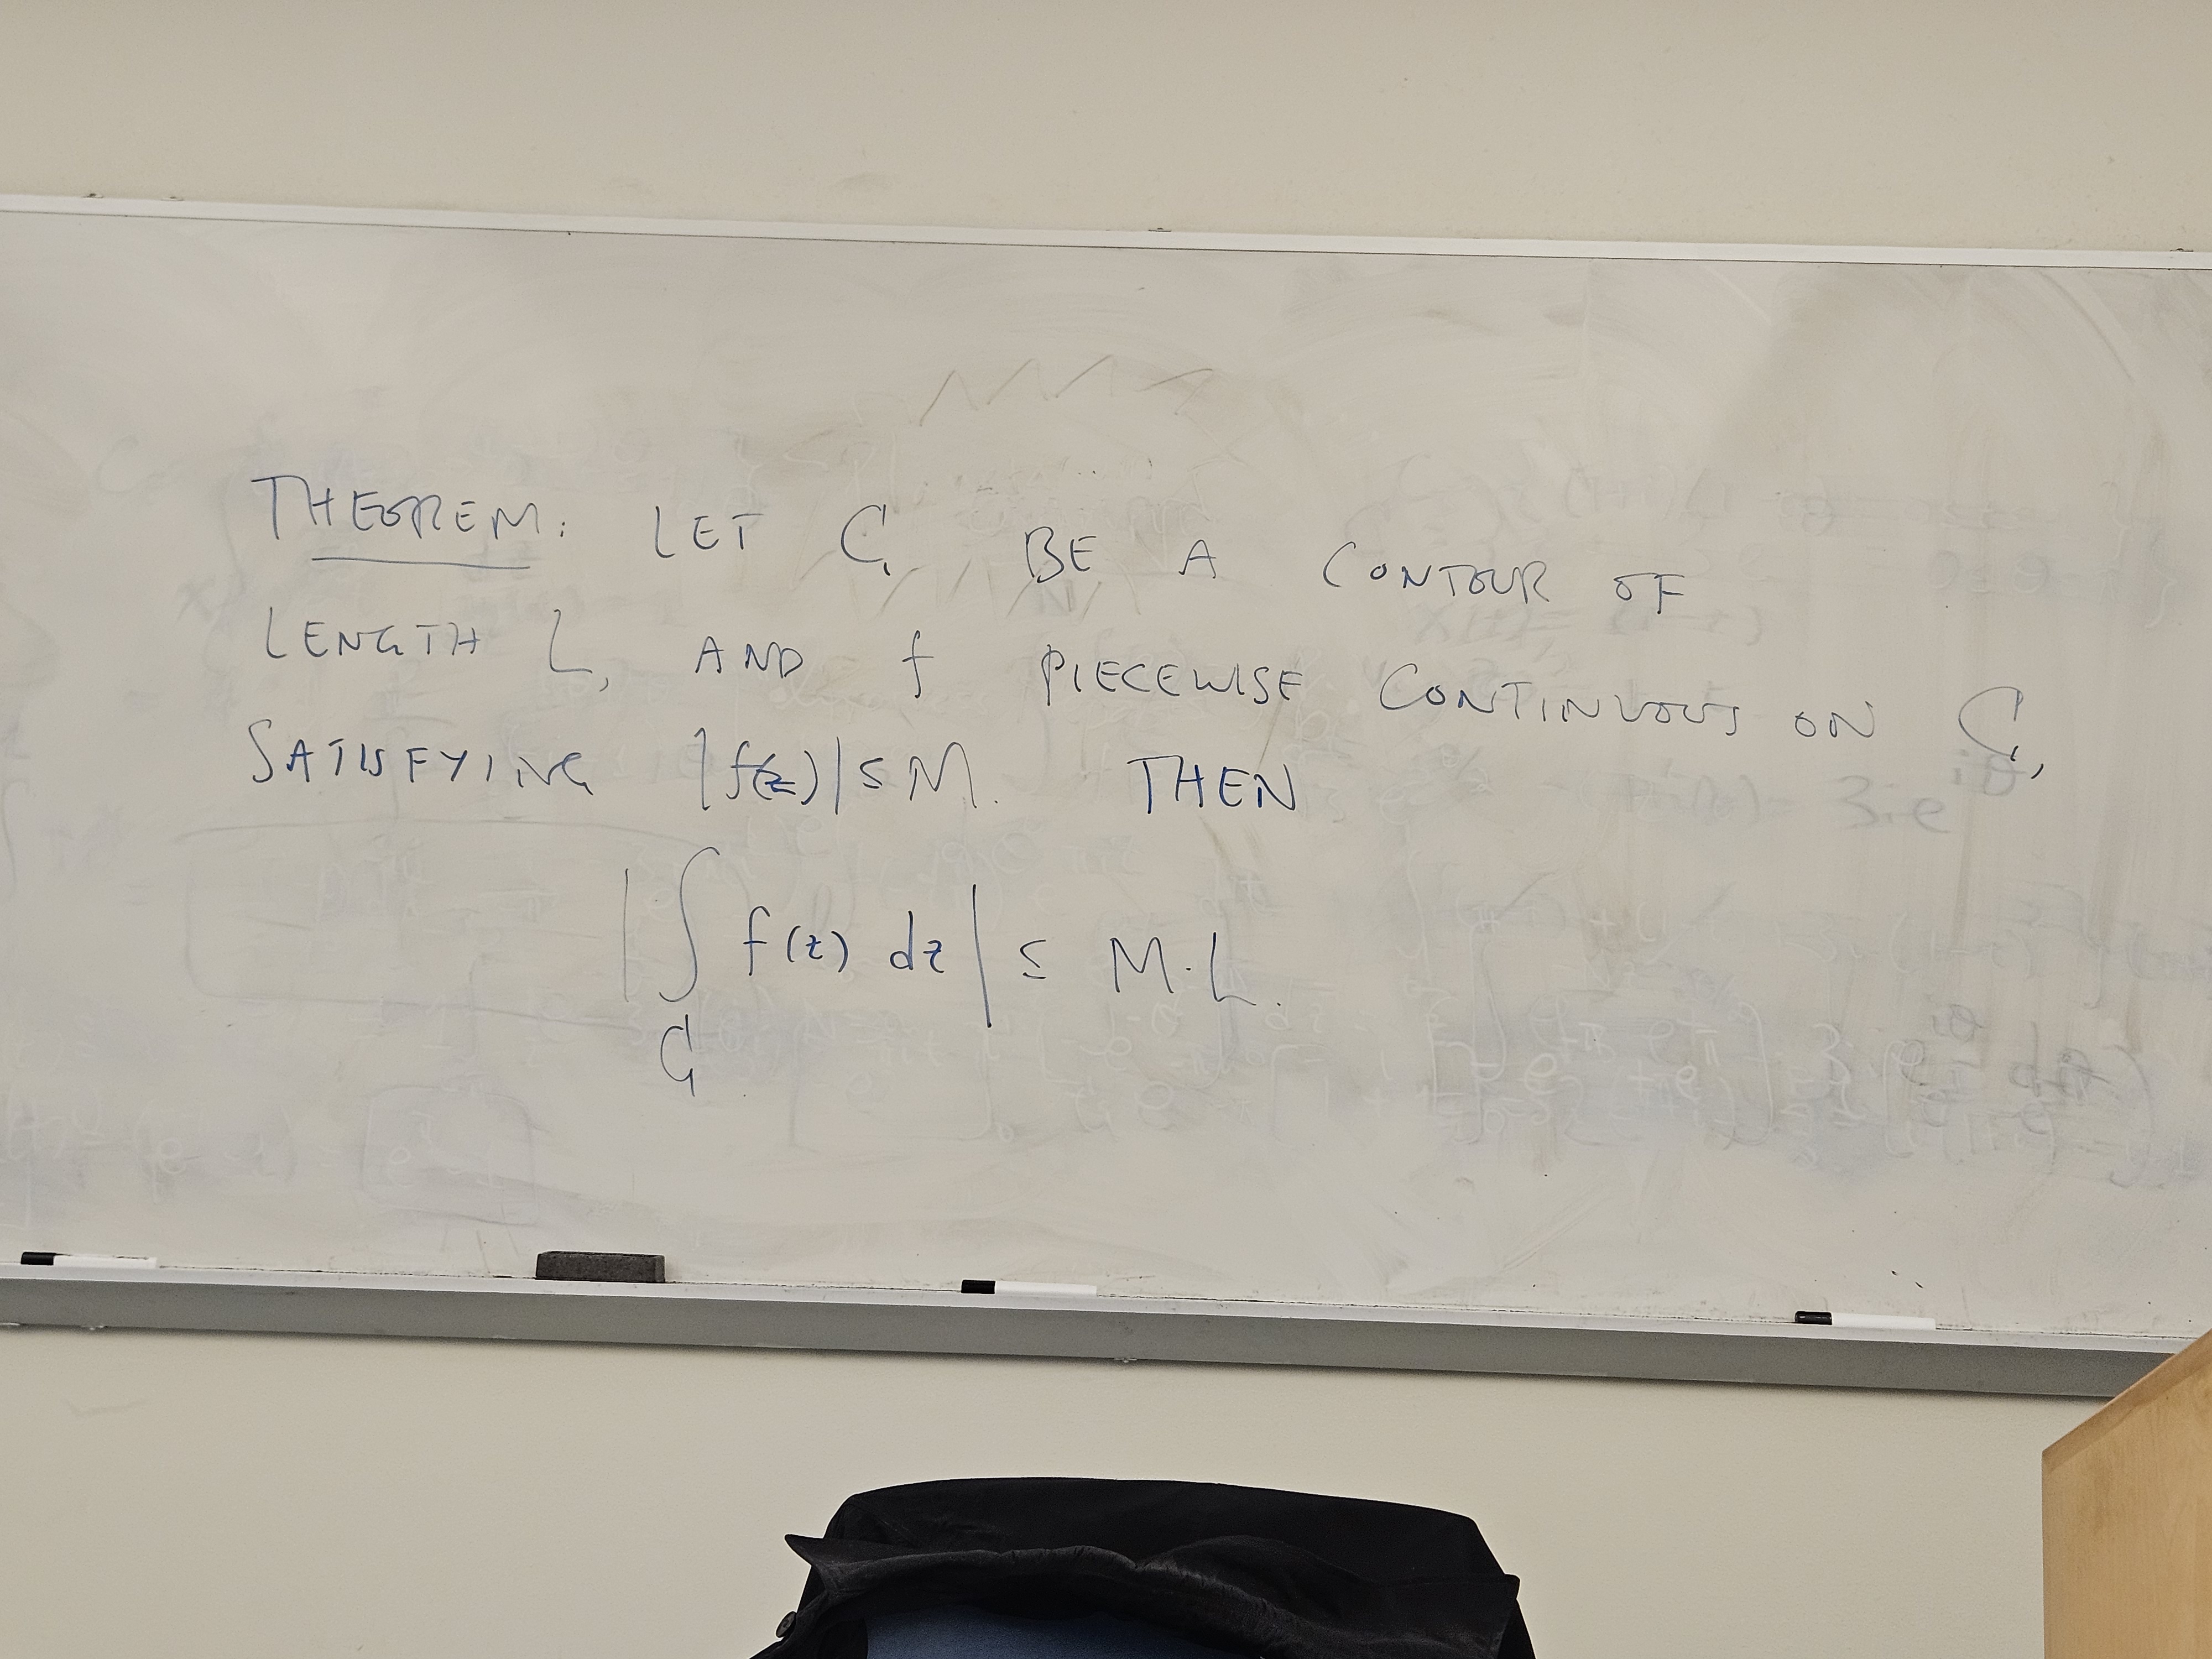 THEOREM: LET C BE A CONTOUR OF
LENGTH L, AND f PIECEWISE CONTINUOUS ON C,
SATISFYING |f(z)| ≤ M. THEN
|∫ f(z) dz| ≤ M·L.
C